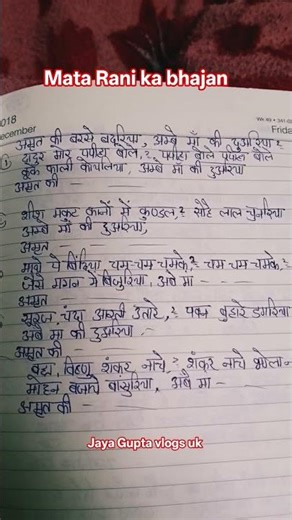 Mata Rani ka bhajan
2018
December
Wk 49 • 341-0
Frida
अमृत की बरसे बदरिया, अम्बे माँ की दुअरिया २
① दादुर मोर पपीहा बोले, २ पपीहा बोले पपीहा बोले
कूके काली कोयलिया, अम्बे माँ की दुअरिया
अमृत की —
शीश मुकट कानों में कुण्डल, २ सोहे लाल चुनरिया
अम्बे माँ की दुअरिया,
अमृत — —
माथे पे बिंदिया चम-चम चमके, २ चम चम चमके,
जैसे गगन में बिजुरिया, अंबे मा - - -
अमृत — —
सूरज चंदा आरती उतारे, २ पवन बुहारे डगरिया
अंबे मा की दुअरिया,
अमृत की — —
ब्रह्मा विष्णु शंकर नाचे २ शंकर नाचे भोला
मोहन बजाये बांसुरिया, अंबे मा - -
अमृत की — —
Jaya Gupta vlogs uk